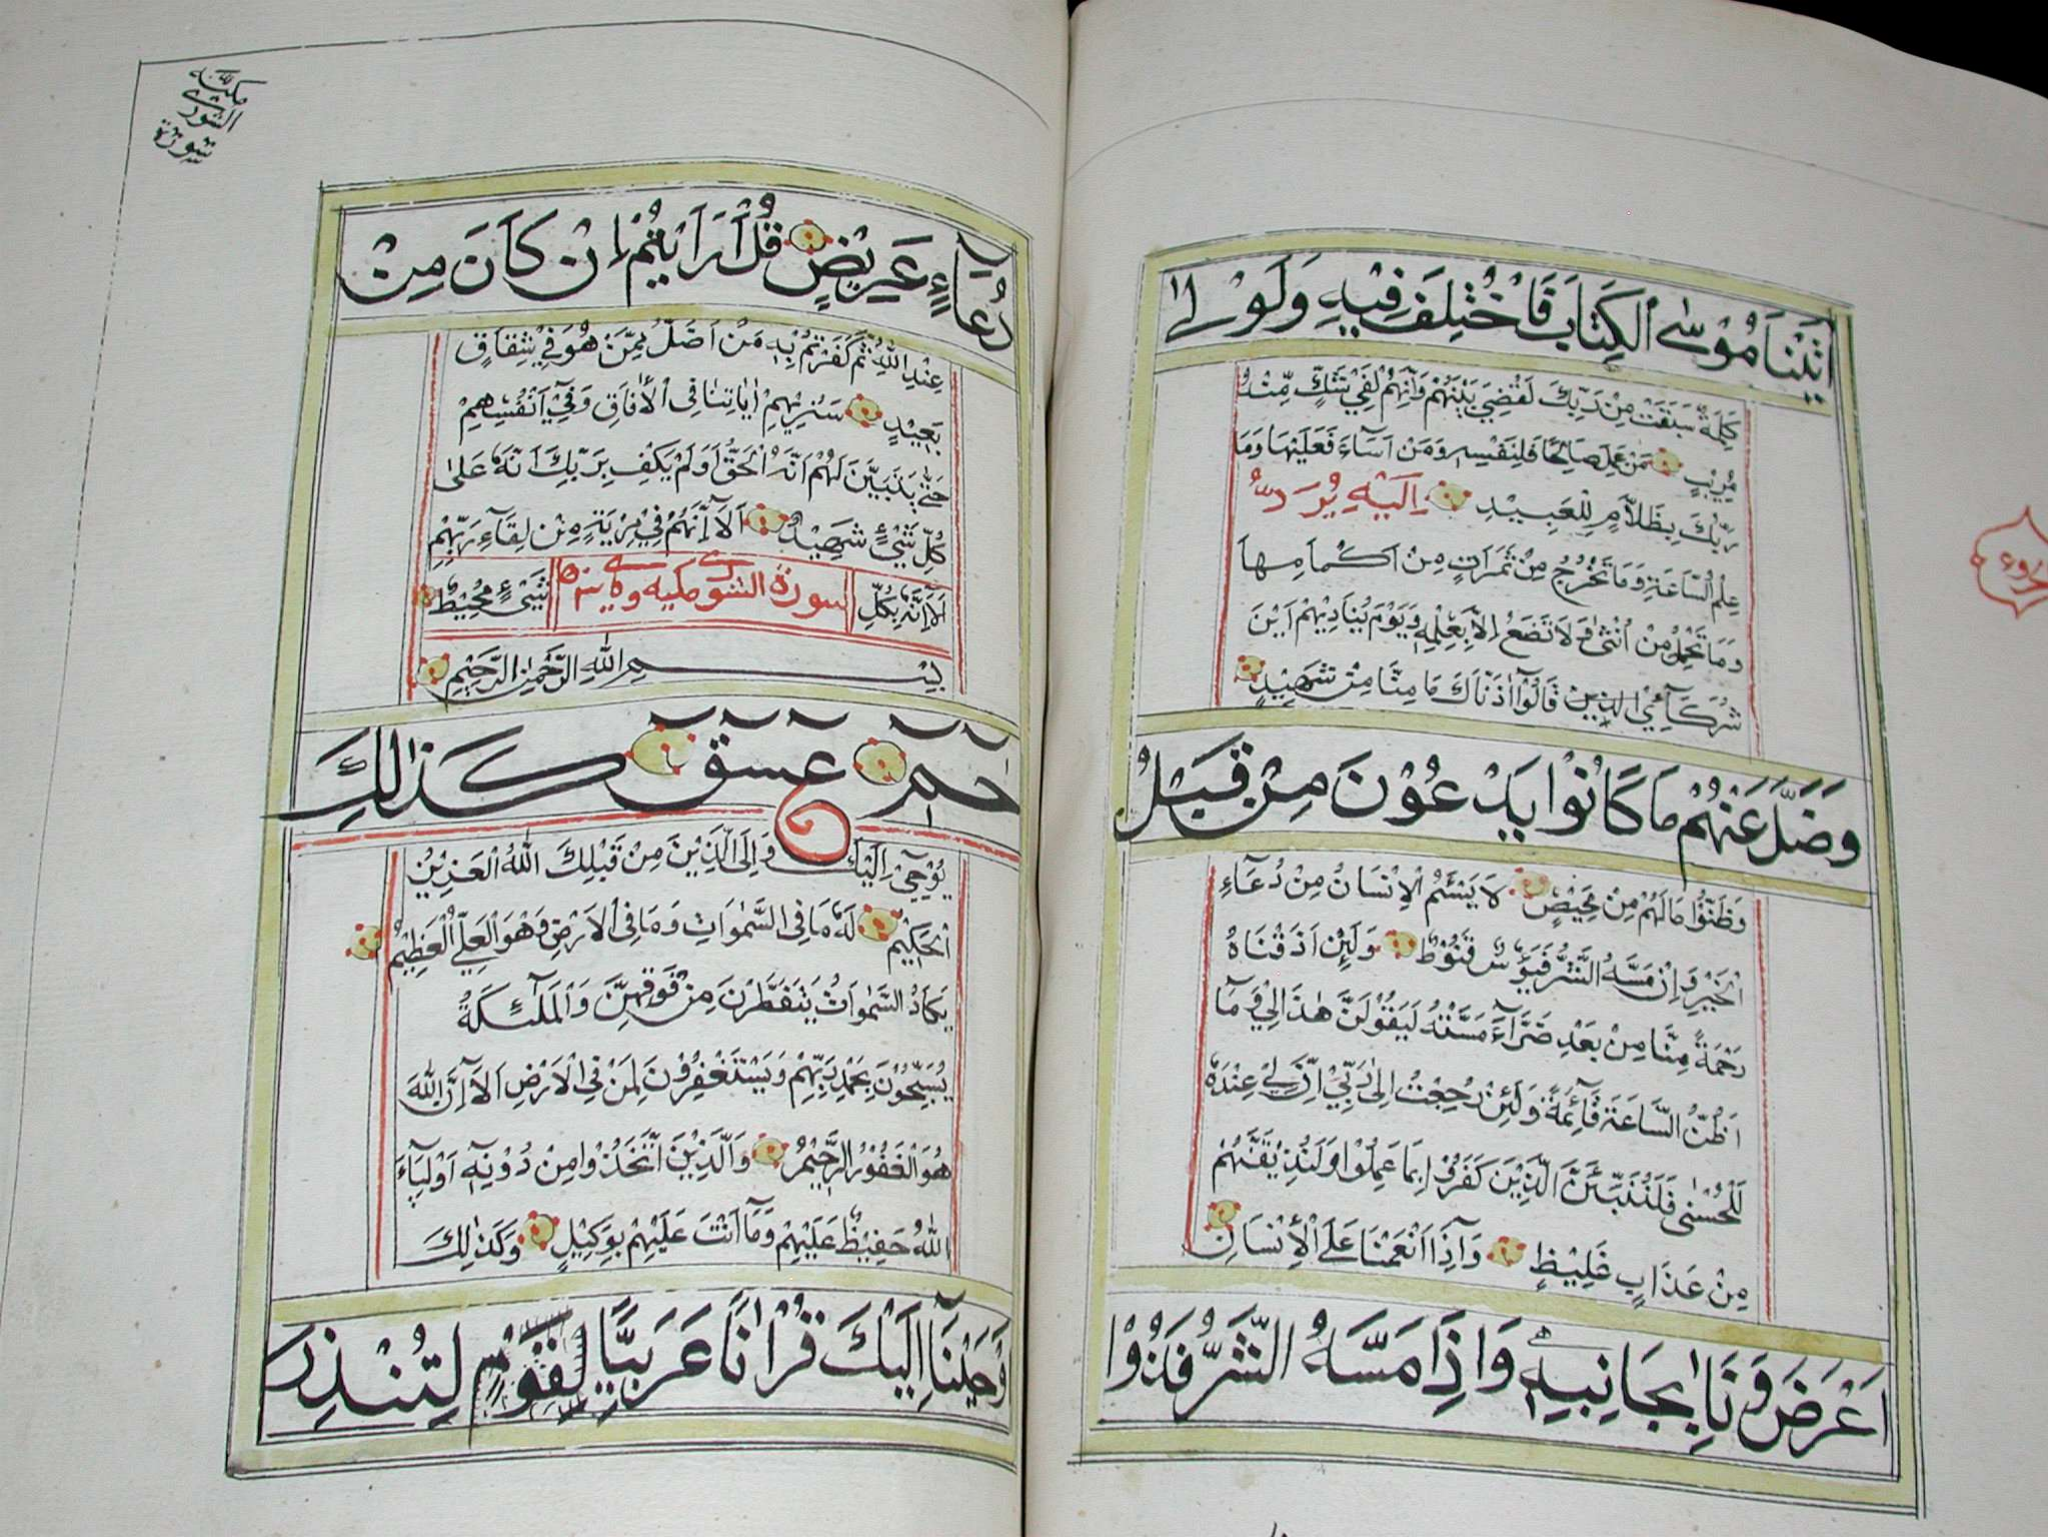 اٰتَيْنَا مُوْسٰى الْكِتَابَ فَاخْتُلِفَ فِيْهِ وَلَوْلَا
كَلِمَةٌ سَبَقَتْ مِنْ رَبِّكَ لَقُضِيَ بَيْنَهُمْ وَاِنَّهُمْ لَفِيْ شَكٍّ مِنْهُ
مُرِيْبٍ مَنْ عَمِلَ صَالِحًا فَلِنَفْسِهٖ وَمَنْ اَسَآءَ فَعَلَيْهَا وَمَا
رَبُّكَ بِظَلَّامٍ لِلْعَبِيْدِ اِلَيْهِ يُرَدُّ
عِلْمُ السَّاعَةِ وَمَا تَخْرُجُ مِنْ ثَمَرَاتٍ مِنْ اَكْمَامِهَا
وَمَا تَحْمِلُ مِنْ اُنْثٰى وَلَا تَضَعُ اِلَّا بِعِلْمِهٖ وَيَوْمَ يُنَادِيْهِمْ اَيْنَ
شُرَكَآئِيْ قَالُوْٓا اٰذَنَّاكَ مَا مِنَّا مِنْ شَهِيْدٍ
وَضَلَّ عَنْهُمْ مَا كَانُوْا يَدْعُوْنَ مِنْ قَبْلُ
وَظَنُّوْا مَا لَهُمْ مِنْ مَحِيْصٍ لَا يَسْئَمُ الْاِنْسَانُ مِنْ دُعَآءِ
الْخَيْرِ وَاِنْ مَسَّهُ الشَّرُّ فَيَؤُسٌ قَنُوْطٌ وَلَئِنْ اَذَقْنَاهُ
رَحْمَةً مِنَّا مِنْ بَعْدِ ضَرَّآءَ مَسَّتْهُ لَيَقُوْلَنَّ هٰذَا لِيْ وَمَآ
اَظُنُّ السَّاعَةَ قَآئِمَةً وَلَئِنْ رُجِعْتُ اِلٰى رَبِّيْٓ اِنَّ لِيْ عِنْدَهُ
لَلْحُسْنٰى فَلَنُنَبِّئَنَّ الَّذِيْنَ كَفَرُوْا بِمَا عَمِلُوْا وَلَنُذِيْقَنَّهُمْ
مِنْ عَذَابٍ غَلِيْظٍ وَاِذَا اَنْعَمْنَا عَلَى الْاِنْسَانِ
اَعْرَضَ وَنَاٰ بِجَانِبِهٖ وَاِذَا مَسَّهُ الشَّرُّ فَذُوْا
دُعَآءٍ عَرِيْضٍ قُلْ اَرَاَيْتُمْ اِنْ كَانَ مِنْ
عِنْدِ اللّٰهِ ثُمَّ كَفَرْتُمْ بِهٖ مَنْ اَضَلُّ مِمَّنْ هُوَ فِيْ شِقَاقٍ
بَعِيْدٍ سَنُرِيْهِمْ اٰيَاتِنَا فِى الْاٰفَاقِ وَفِيْٓ اَنْفُسِهِمْ
حَتّٰى يَتَبَيَّنَ لَهُمْ اَنَّهُ الْحَقُّ اَوَلَمْ يَكْفِ بِرَبِّكَ اَنَّهُ عَلٰى
كُلِّ شَيْءٍ شَهِيْدٌ اَلَآ اِنَّهُمْ فِيْ مِرْيَةٍ مِنْ لِقَآءِ رَبِّهِمْ
اَلَآ اِنَّهُ بِكُلِّ شَيْءٍ مُحِيْطٌ
بِسْمِ اللّٰهِ الرَّحْمٰنِ الرَّحِيْمِ
حٰمٓ عٓسٓقٓ كَذٰلِكَ
يُوْحِيْٓ اِلَيْكَ وَاِلَى الَّذِيْنَ مِنْ قَبْلِكَ اللّٰهُ الْعَزِيْزُ
الْحَكِيْمُ لَهُ مَا فِى السَّمٰوَاتِ وَمَا فِى الْاَرْضِ وَهُوَ الْعَلِيُّ الْعَظِيْمُ
يَكَادُ السَّمٰوَاتُ يَتَفَطَّرْنَ مِنْ فَوْقِهِنَّ وَالْمَلٰٓئِكَةُ
يُسَبِّحُوْنَ بِحَمْدِ رَبِّهِمْ وَيَسْتَغْفِرُوْنَ لِمَنْ فِى الْاَرْضِ اَلَآ اِنَّ اللّٰهَ
هُوَ الْغَفُوْرُ الرَّحِيْمُ وَالَّذِيْنَ اتَّخَذُوْا مِنْ دُوْنِهٖٓ اَوْلِيَآءَ
اللّٰهُ حَفِيْظٌ عَلَيْهِمْ وَمَآ اَنْتَ عَلَيْهِمْ بِوَكِيْلٍ وَكَذٰلِكَ
اَوْحَيْنَآ اِلَيْكَ قُرْاٰنًا عَرَبِيًّا لِقَوْمٍ لِتُنْذِرَ